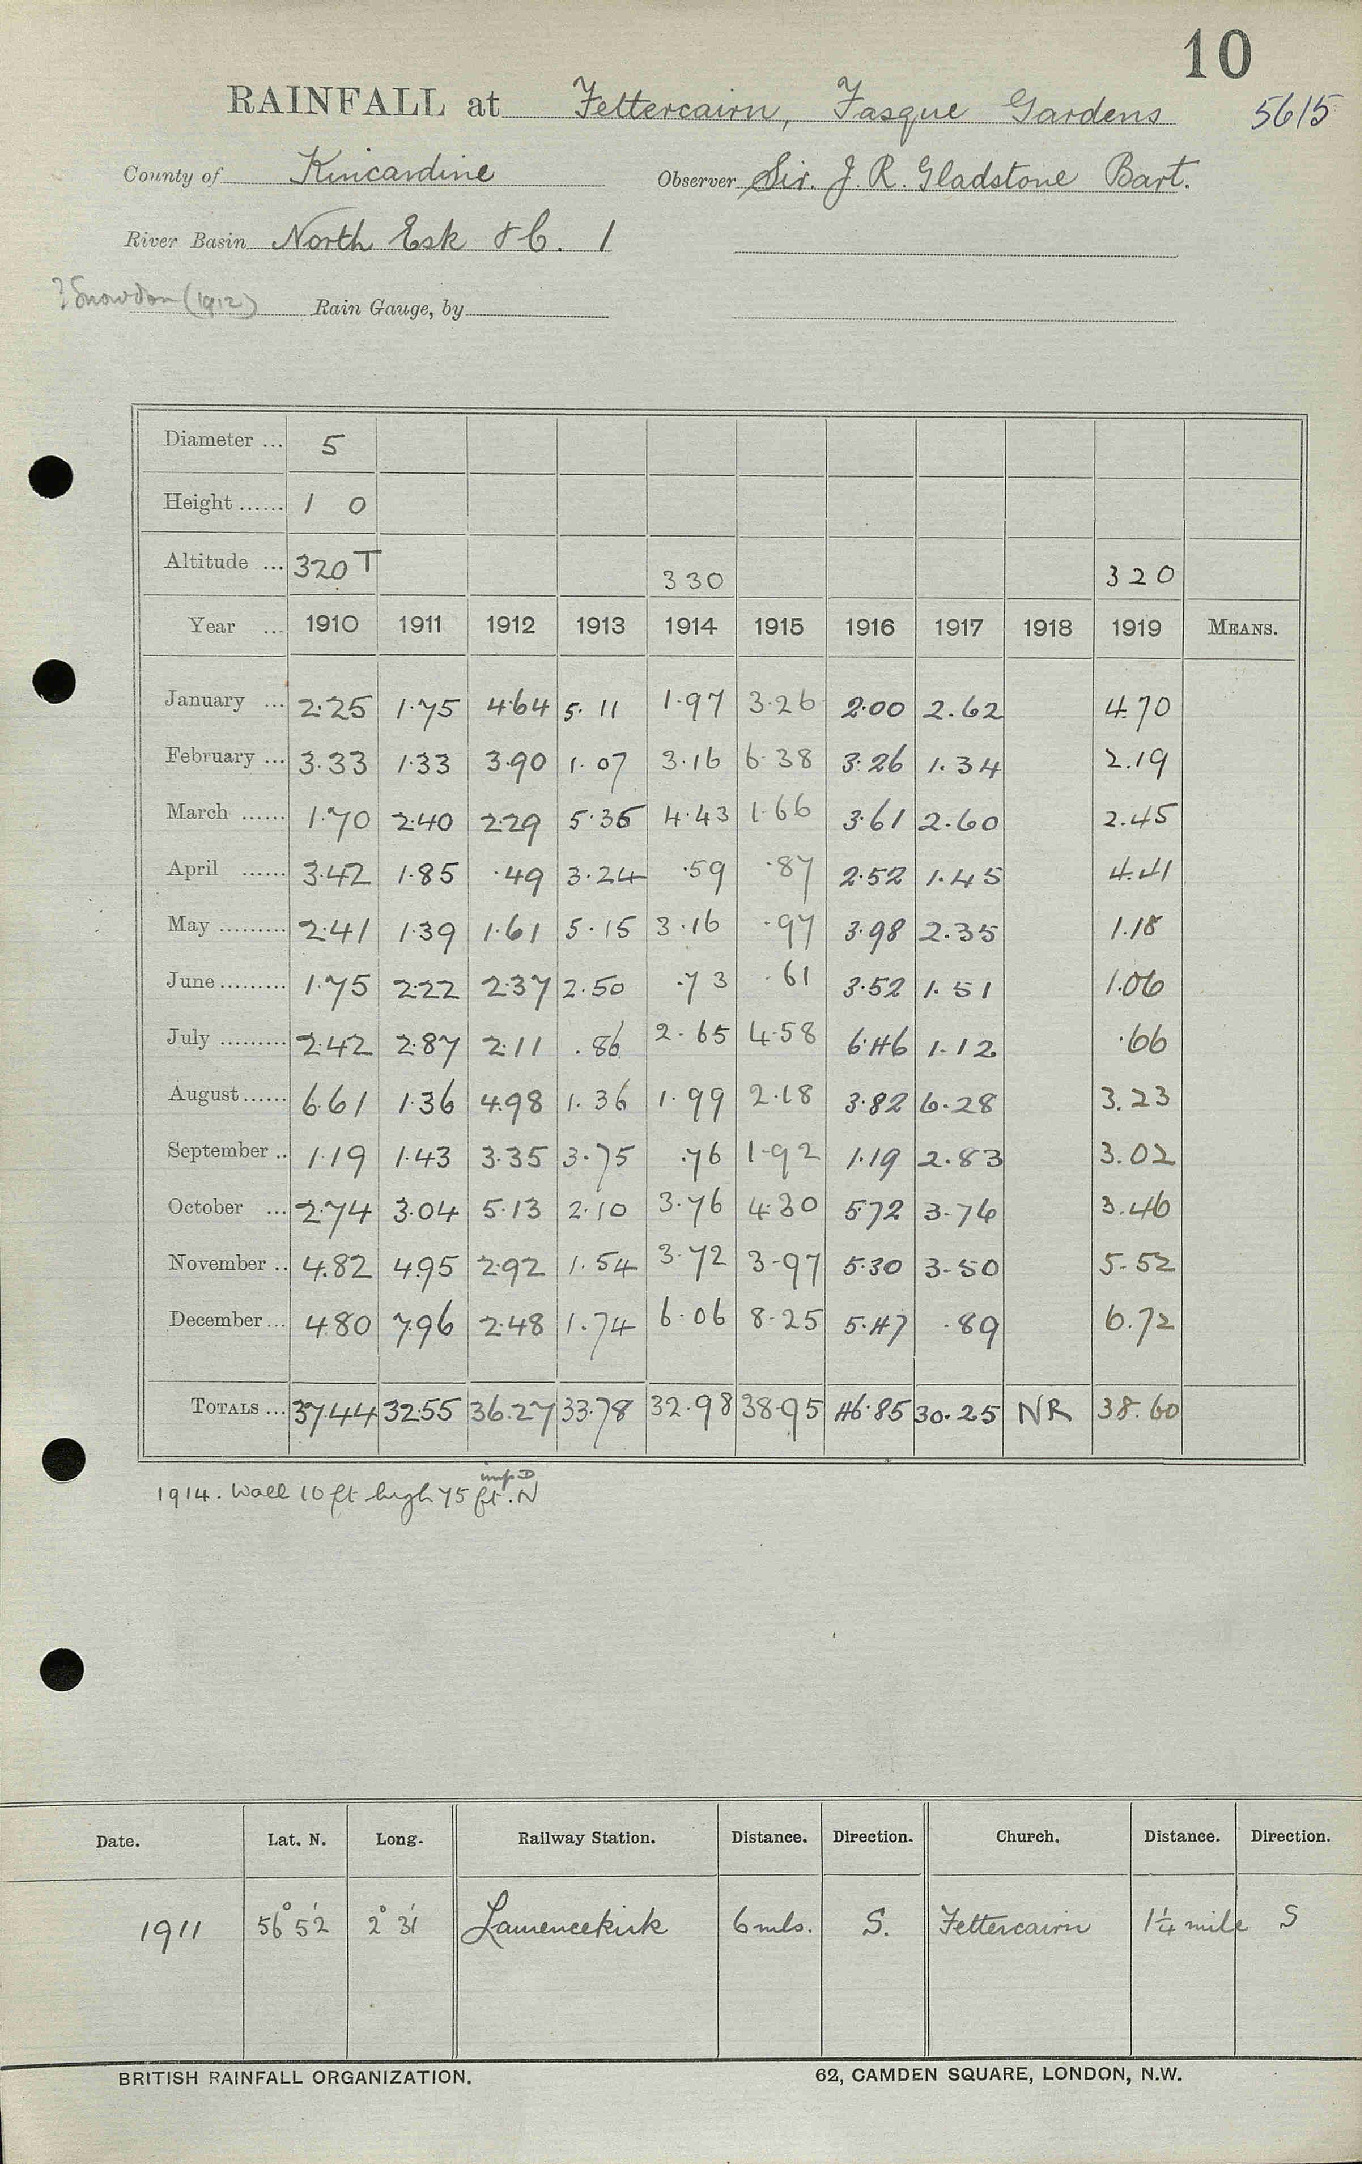 10
RAINFALL at Fettercairn, Fasque Gardens 5615
County of Kincardine Observer Sir. J. R. Gladstone Bart.
River Basin North Esk &C. 1
? Snowdon (1912) Rain Gauge, by
Diameter ... 5
Height ...... 1 0
Altitude ... 320 T 330 320
Year ... 1910 1911 1912 1913 1914 1915 1916 1917 1918 1919 MEANS.
January ... 2.25 1.75 4.64 5.11 1.97 3.26 2.00 2.62 4.70
February ... 3.33 1.33 3.90 1.07 3.16 6.38 3.26 1.34 2.19
March ...... 1.70 2.40 2.29 5.36 4.43 1.66 3.61 2.60 2.45
April ...... 3.42 1.85 .49 3.24 .59 .87 2.52 1.45 4.41
May ......... 2.41 1.39 1.61 5.15 3.16 .97 3.98 2.35 1.18
June ......... 1.75 2.22 2.37 2.50 .73 .61 3.52 1.51 1.06
July ......... 2.42 2.87 2.11 .86 2.65 4.58 6.46 1.12 .66
August ...... 6.61 1.36 4.98 1.36 1.99 2.18 3.82 6.28 3.23
September .. 1.19 1.43 3.35 3.75 .76 1.92 1.19 2.83 3.02
October ... 2.74 3.04 5.13 2.10 3.76 4.30 5.72 3.76 3.46
November .. 4.82 4.95 2.92 1.54 3.72 3.97 5.30 3.50 5.52
December ... 4.80 7.96 2.48 1.74 6.06 8.25 5.47 .89 6.72
TOTALS ... 37.44 32.55 36.27 33.78 32.98 38.95 46.85 30.25 NR 38.60
1914. Wall 10 ft high 75 ft. N
Date. Lat. N. Long. Railway Station. Distance. Direction. Church. Distance. Direction.
1911 56° 52' 2° 31' Laurencekirk 6 mls. S. Fettercairn 1¼ mile S
BRITISH RAINFALL ORGANIZATION. 62, CAMDEN SQUARE, LONDON, N.W.